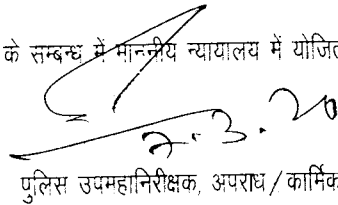 के सम्बन्ध में माननीय न्यायालय में योजित
7.3.20
पुलिस उपमहानिरीक्षक, अपराध / कार्मिक